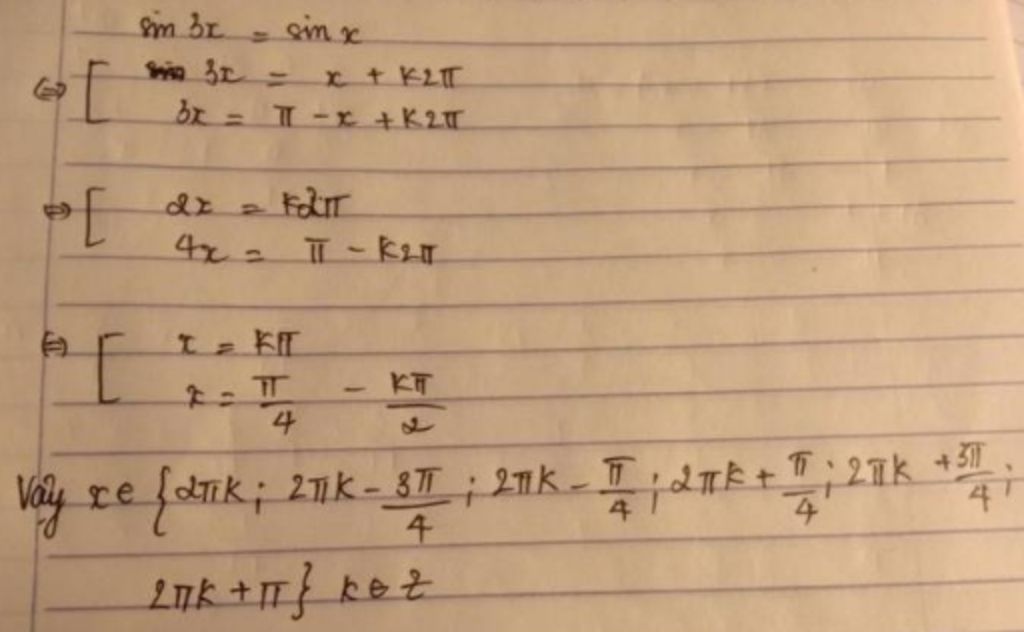 sin 3x = sin x
⇔ [ 3x = x + k2π
3x = π - x + k2π
⇔ [ 2x = k2π
4x = π - k2π
⇔ [ x = kπ
x = π/4 - kπ/2
Vậy x ∈ { 2πk ; 2πk - 3π/4 ; 2πk - π/4 ; 2πk + π/4 ; 2πk + 3π/4 ;
2πk + π } k ∈ Z